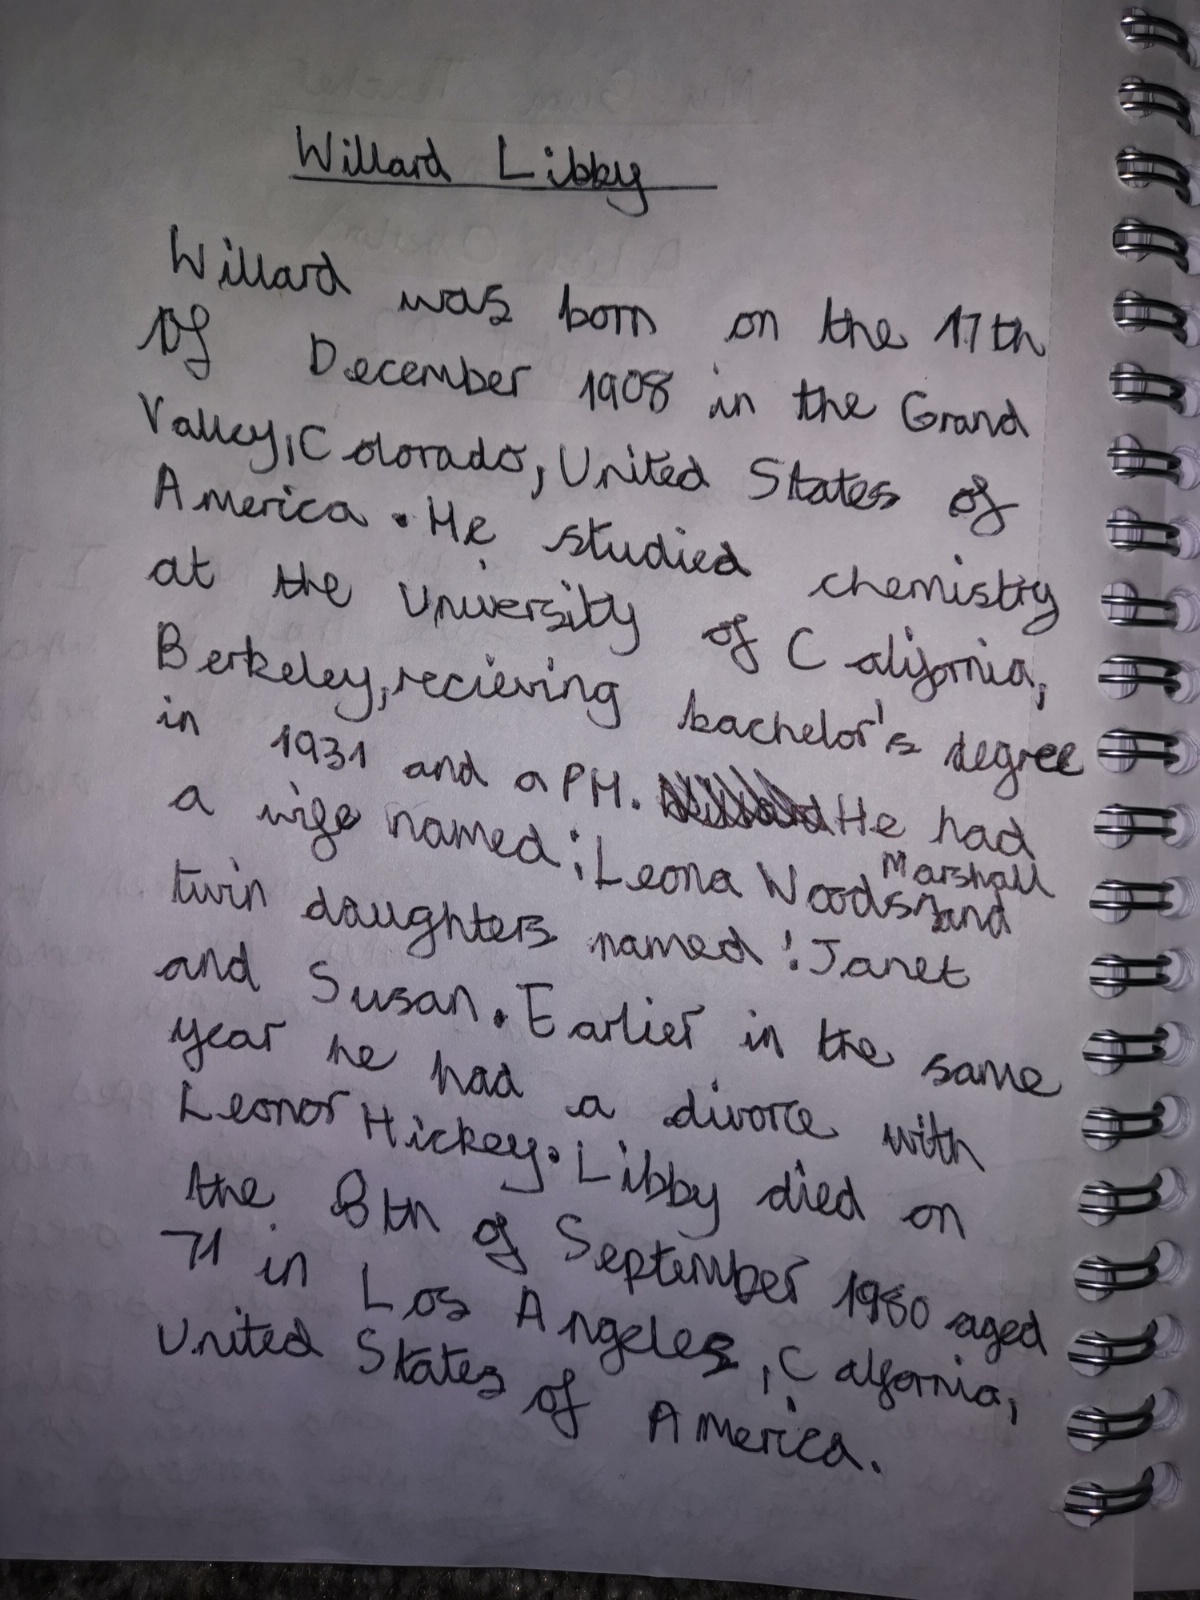 Willard Libby
Willard was born on the 17th
Of December 1908 in the Grand
Valley, Colorado, United States of
America. He studied chemistry
at the University of California,
Berkeley, recieving bachelor's degree
in 1931 and a PH. He had
a wife named: Leona Woods Marshall and
twin daughters named: Janet
and Susan. Earlier in the same
year he had a divorce with
Leonor Hickey. Libby died on
the 8th of September 1980 aged
71 in Los Angeles, Calfornia,
United States of America.